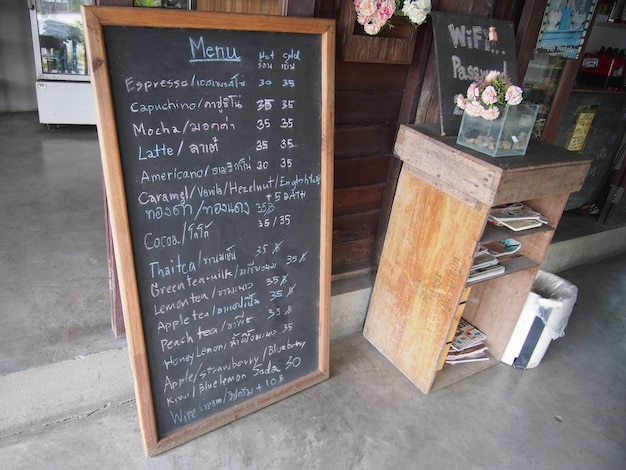 Menu
Hot Cold
ร้อน เย็น
Espresso/เอสเพรสโซ่ 30 35
Capuchino/คาปูชิโน 35 35
Mocha/มอคค่า 35 35
Latte/ลาเต้ 35 35
Americano/อเมริกาโน่ 30 35
Caramel/Vanila/Hezelnut/English toffy
+5 BATH
ทองดำ/ทองแดง 35 ฿
Cocoa/โกโก้ 35/35
Thai tea/ชามะเย็น 35 ฿
Green tea+milk/ชาเขียวนม 35 ฿
Lemon tea/ชามะนาว 35 ฿
Apple tea/ชาแอปเปิ้ล 35 ฿
Peach tea/ชาพีช 35 ฿
Honey Lemon/น้ำผึ้งมะนาว 35
Apple/Strawberry/Blueberry
Kiwi/Blue lemon Soda 30
Wipe Cream/วิปครีม +10 ฿
WiFi
Password